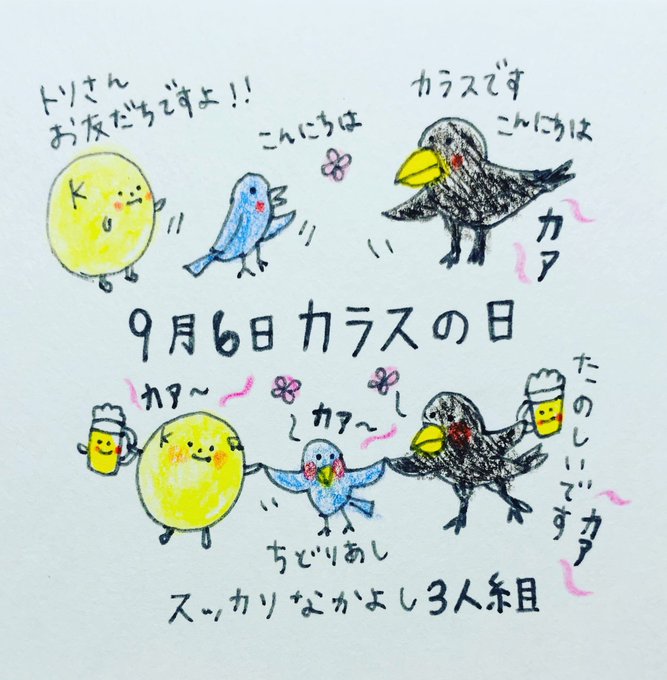 トリさん
お友だちですよ!!
こんにちは
カラスです
こんにちは
カア
K
9月6日カラスの日
カア〜
カア〜
K
たのしいです
カア
ちどりあし
スッカリなかよし3人組